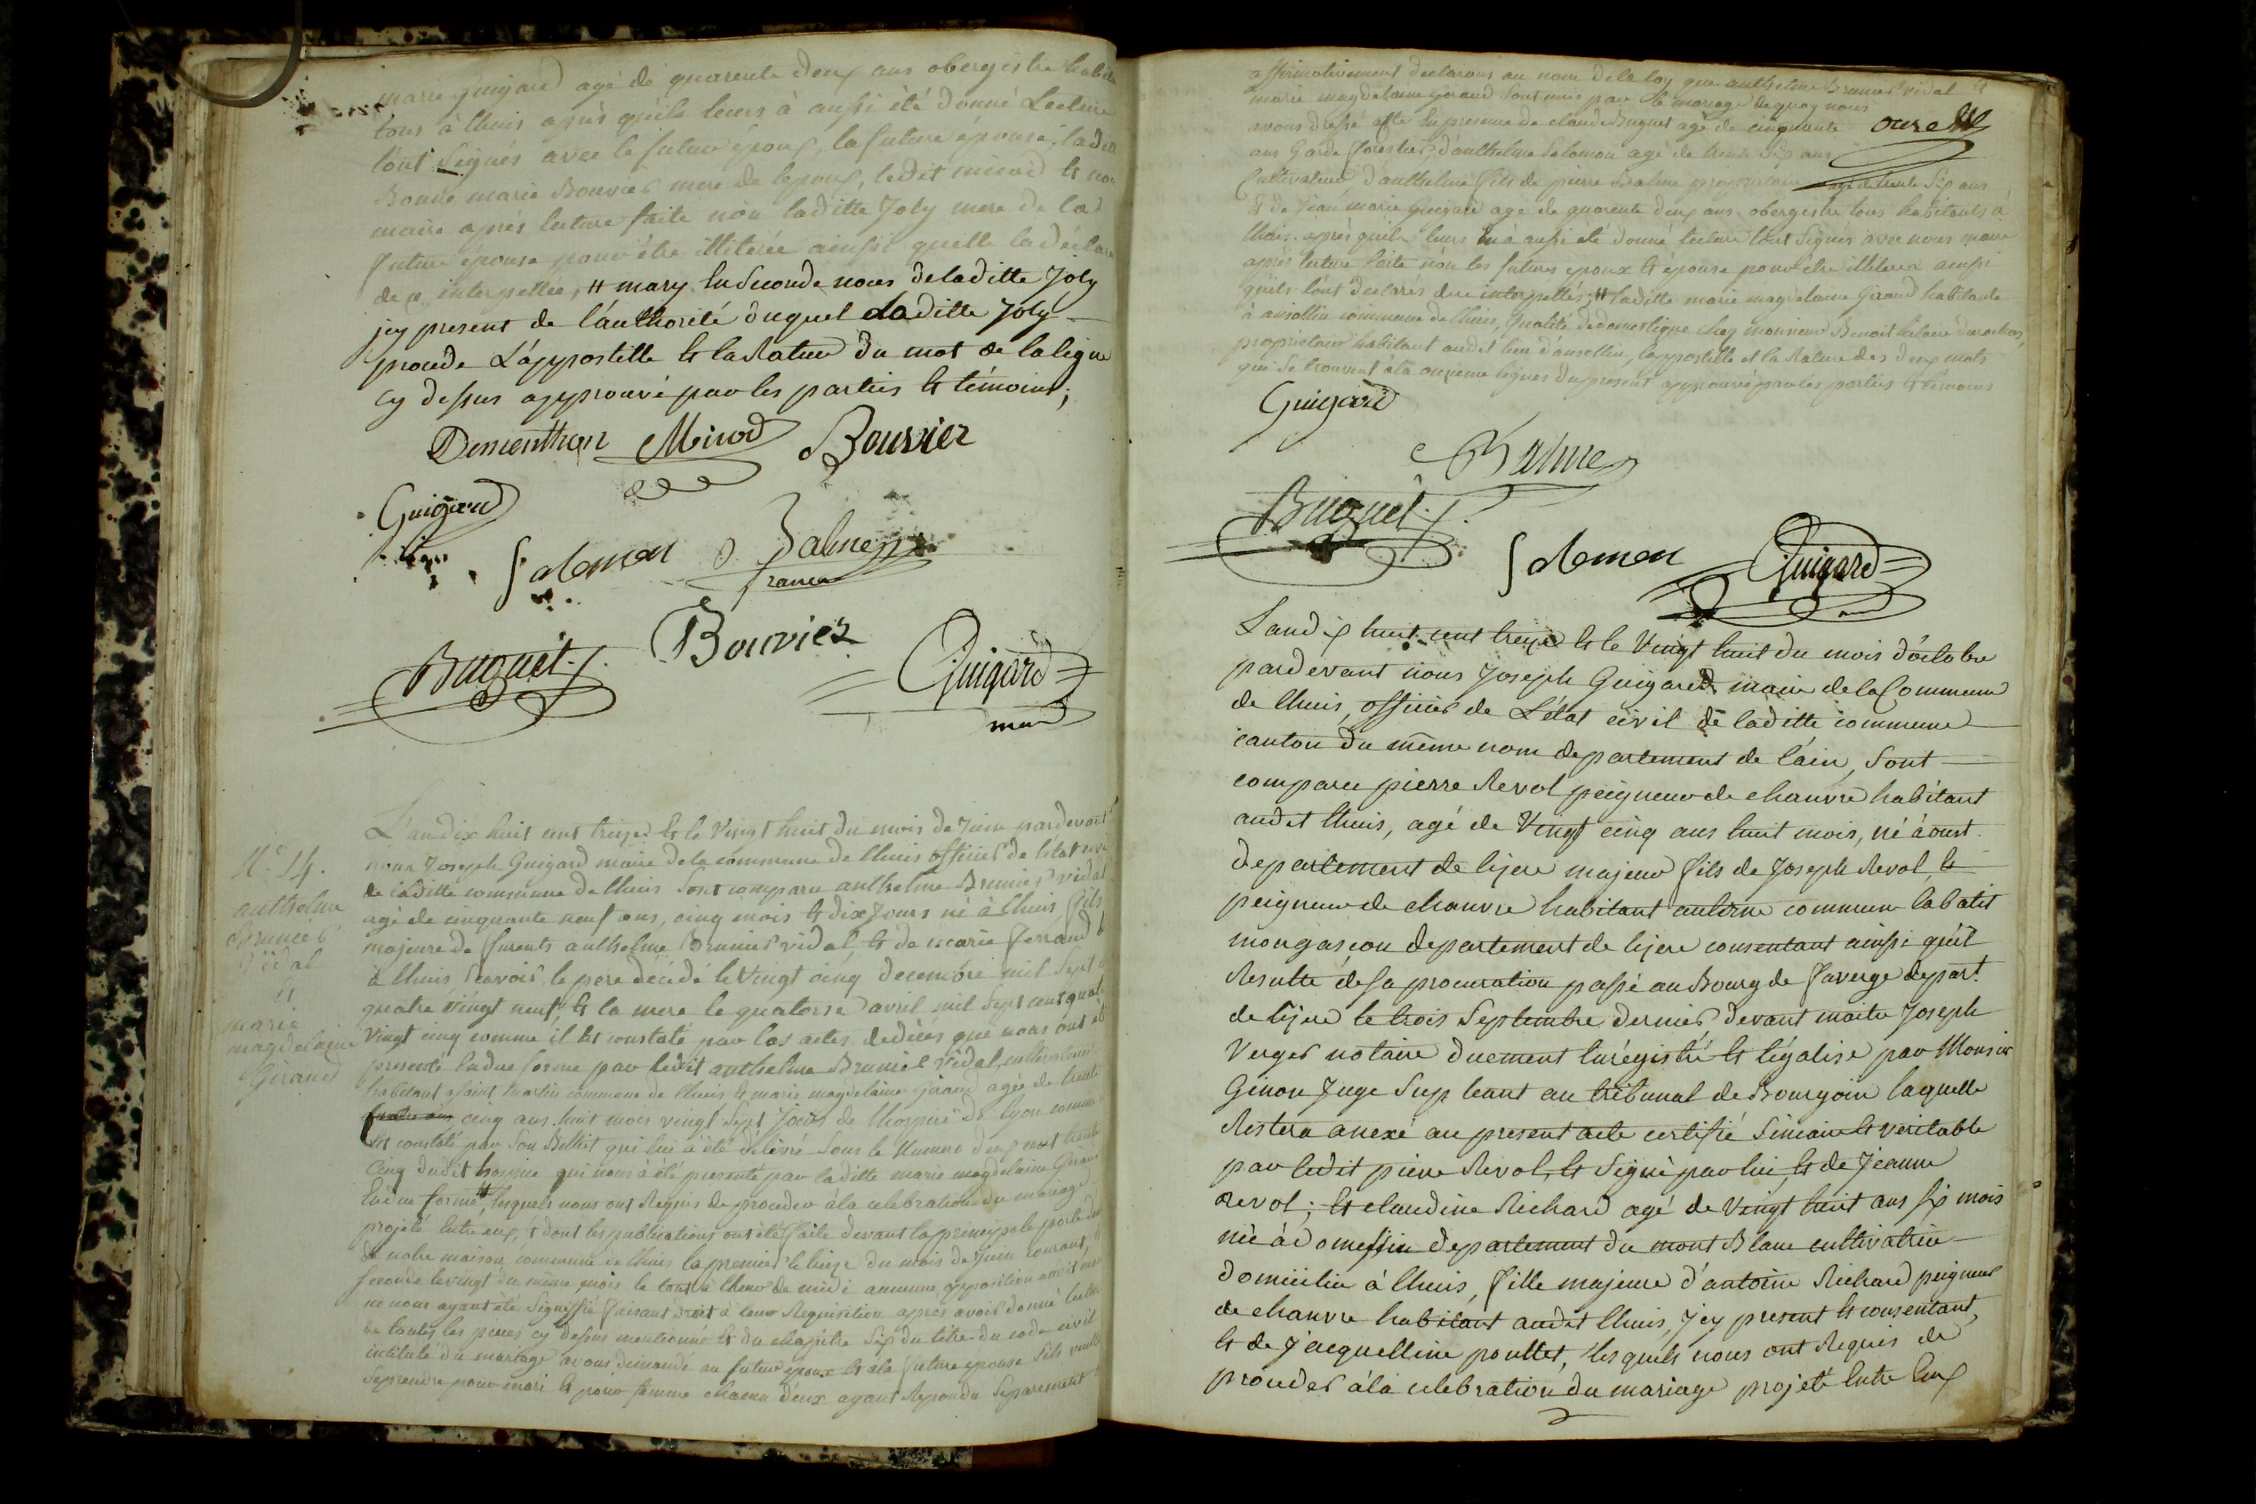 marie Guigard agé de quarente deux ans obergiste habit
tous à lhuis après qu'ils leurs à aussi été donné Lecture
l'ont signés avec le futur époux, la future épouse, ladite
Bonne marie Bouvier mere de lepoux, ledit mirod et nous
maire après lecture faite non laditte Joly mere de lad
future épouse pour être illiterée ainsi quelle la déclaré
de ce interpellée, # mary en seconde noces de laditte Joly
jcy present de l'authorité duquel Laditte Joly
procede L'appostille et la Rature du mot de la ligne
cy dessus approuvé par les parties et témoins;
Dementhon Mirod Bouvier
Guigard
Salomon Balme
france
Buguet. Bouvier Guigard
maire
N.º 14.
anthelme
Brunier
vidal
et
marie
magdelaine
Giraud
L'an dix huit cent treize et le Vingt huit du mois de Juin pardevant
nous Joseph Guigard maire de la commune de lhuis officier de létat civil
de laditte commune de lhuis sont comparu anthelme Brunier vidal
agé de cinquante neuf ans, cinq mois et dix Jours né à lhuis, fils
majeure de furents anthelme Brunier vidal, et de marie ferrand
à lhuis, scavoir le pere décédé le Vingt cinq decembre mil sept
quatre vingt neuf, et la mere le quatorse avril mil sept cent quatre
Vingt cinq comme il est constaté par les actes de décès que nous ont été
presenté en due forme par ledit anthelme Brunier Vidal, cultivateur
habitant à saint martin commune de lhuis et marie magdelaine Giraud agée de trente
cinq ans huit mois vingt sept Jours de lhospice de lyon comme
est constaté par son Bulletit qui lui a été délivré sous le Numero deux cent trente
Cinq dudit hospice qui nous à été presenté par laditte marie magdelaine Giraud
en forme #, lesquels nous ont Requis de proceder à la celebration du mariage
projeté entre eux, et dont les publications ont été faite devant la principale porte
de notre maison commune de lhuis la premiere le treize du mois de Juin courant,
seconde le vingt du même mois le tout à lheure de midi aucunne opposition audit
ne nous ayant été signiffié faisant droit à leur Requisition après avoir donné lecture
de toutes les pieces cy dessus mentionné et du chapitre six du titre du code civil
intitulé du mariage avons demandé au futur époux et à la future épouse sils veulent
se prendre pour mari et pour femme chacun d'eux ayant Repondu separement
affirmativement declarons au nom de la loy que anthelme Brunier vidal et
marie magdelaine Giraud sont unis par le mariage de quoy nous
avons dressé acte en presence de claude Buguet agé de cinquante onze
ans Garde forestier, d'anthelme Salomon agé de trente six ans
Cultivateur d'anthelme fils de pierre Balme proprietaire agé de trente six ans
et de Jean marie Guigard agé de quarente deux ans obergiste tous habitants à
lhuis. après quils leurs en à aussi été donné lecture l'ont signés avec nous maire
après lecture faite non les futurs epoux et épouse pour être illiterés ainsi
qu'ils l'ont declarés de ce interpellés; # laditte marie magdelaine Giraud habitante
à ansollin commune de lhuis, qualité de domestique chez monsieur Benoit hilaire
proprietaire habitant audit lieu d'ansollin, l'appostille et la Rature des deux mots
qui se trouvent à la onzieme lignes du present approuvé par les parties et témoins
Guigard
Balme
Buguet.
Salomon Guigard
L'an dix huit cent treize et le Vingt huit du mois d'octobre
pardevant nous Joseph Guigard maire de la Commune
de lhuis, officier de L'état civil de laditte commune
canton du même nom departement de l'ain, sont
comparu pierre Revol peigneur de chanvre habitant
audit lhuis, agé de Vingt cinq ans huit mois, né à
departement de lizere majeur fils de Joseph Revol, le
peigneur de chanvre habitant commune labatit
mongascon departement de lizere consentant ainsi qu'il
Resulte de sa procuration passé au Bourg de faverge depart.
de lizere le trois Septembre dernier devant maitre Joseph
Verger notaire duement Enrégistré et légalisé par Monsieur
Genon Juge Supleant au tribunal de Bourgoin laquelle
Restera anexé au present acte certifié Sincaire et veritable
par ledit pierre Revol, et signé par lui, et de Jeanne
Revol; et claudine Richard agé de Vingt huit ans six mois
née à domessin departement du mont Blanc cultivatrice
domiciliée à lhuis, fille majeure d'antoine Richard peigneur
de chanvre habitant audit lhuis, Jcy present et consentant,
et de Jacquelline pouttet, lesquels nous ont Requis de
proceder à la celebration du mariage projeté Entre Eux